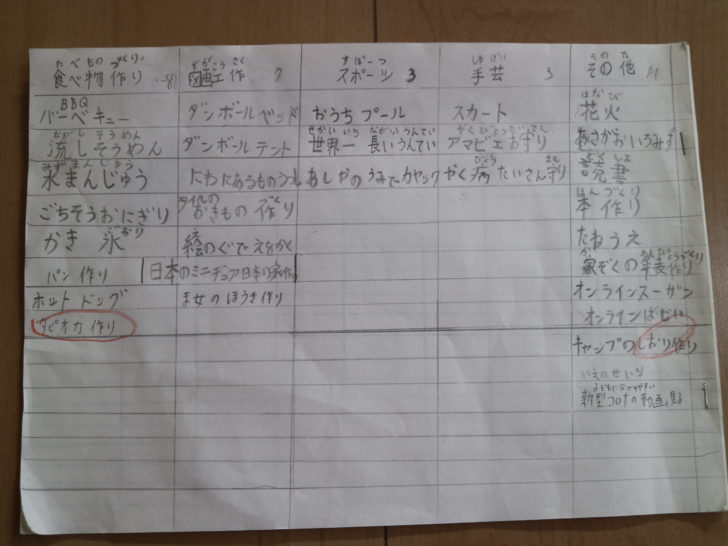 たべもの づくり
食べ物作り 8
ずがこうさく
図画工作 7
すぽーつ
スポーツ 3
しゅげい
手芸 3
そのた
その他 11
BBQ
バーベキュー
ダンボールベッド
おうちプール
スカート
はなび
花火
ながし そうめん
流しそうめん
ダンボールテント
せかいいち ながいうんてい
世界一 長いうんてい
アマビエお守り
あさがおいろみず
みずまんじゅう
水まんじゅう
にわにあるものうつし
あしやのうみでカヤック
やく病たいさん守り
どくしょ
読書
ごちそうおにぎり
タイルの
おきもの作り
ほんづくり
本作り
かき氷
絵のぐでえをかく
たねうえ
パン作り
日本のミニチュア日本の家作り
家ぞくの年表作り
ホットドッグ
ま女のほうき作り
オンラインスーザン
タピオカ作り
オンライン
キャンプのしおり作り
いえのせいり
新型コロナの動画見る